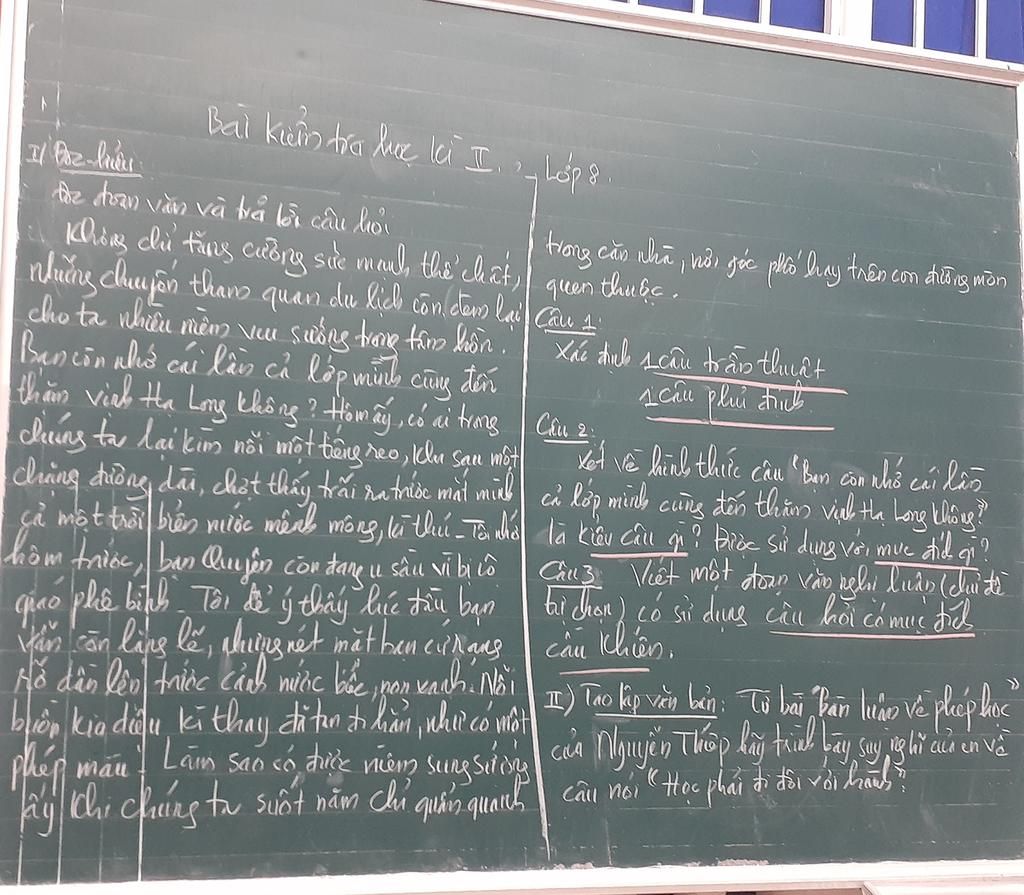 Bài kiểm tra học kì II. - Lớp 8.
I/ Đọc-hiểu:
Đọc đoạn văn và trả lời câu hỏi
Không chỉ tăng cường sức mạnh thể chất,
những chuyến tham quan du lịch còn đem lại
cho ta nhiều niềm vui sướng trong tâm hồn.
Bạn còn nhớ cái lần cả lớp mình cùng đến
thăm vịnh Hạ Long không? Hôm ấy, có ai trong
chúng ta lại kìm nổi một tiếng reo, khi sau một
chặng đường dài, chợt thấy trải ra trước mắt mình
cả một trời biển nước mênh mông, kì thú. Tôi nhớ
hôm trước, bạn Quyên còn đang u sầu vì bị cô
giáo phê bình. Tôi để ý thấy lúc đầu bạn
vẫn còn lặng lẽ, nhưng nét mặt bạn cứ rạng
rỡ dần lên trước cảnh nước bốc, non xanh. Nỗi
buồn kia diệu kì thay đã tan đi hẳn, như có một
phép màu! Làm sao có được niềm sung sướng
ấy khi chúng ta suốt năm chỉ quẩn quanh
trong căn nhà, nơi góc phố hay trên con đường mòn
quen thuộc.
Câu 1:
Xác định 1 câu trần thuật
1 câu phủ định
Câu 2:
Xét về hình thức câu "Bạn còn nhớ cái lần
cả lớp mình cùng đến thăm vịnh Hạ Long không?"
là kiểu câu gì? Được sử dụng với mục đích gì?
Câu 3 Viết một đoạn văn nghị luận (chủ đề
tự chọn) có sử dụng câu hỏi có mục đích
cầu khiến.
II) Tạo lập văn bản: Từ bài "Bàn luận về phép học"
của Nguyễn Thiếp hãy trình bày suy nghĩ của em về
câu nói "Học phải đi đôi với hành".